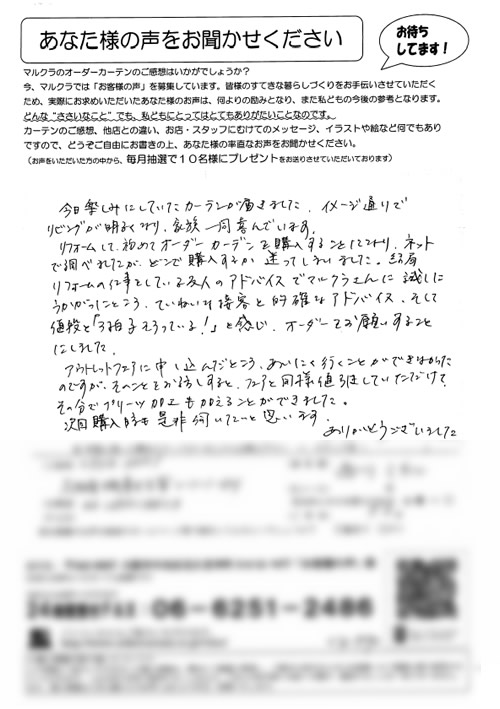 あなた様の声をお聞かせください
お待ち
してます！
マルクラのオーダーカーテンのご感想はいかがでしょうか？
今、マルクラでは「お客様の声」を募集しています。皆様のすてきな暮らしづくりをお手伝いさせていただく
ため、実際にお求めいただいたあなた様のお声は、何よりの励みとなり、また私どもの今後の参考となります。
どんな“ささいなこと”でも、私どもにとってはとてもありがたいことなのです。
カーテンのご感想、他店との違い、お店・スタッフにむけてのメッセージ、イラストや絵など何でもあり
ですので、どうぞご自由にお書きの上、あなた様の率直なお声をお聞かせください。
（お声をいただいた方の中から、毎月抽選で１０名様にプレゼントをお送りさせていただいております）
今日楽しみにしていたカーテンが届きました。イメージ通りで
リビングが明るくなり、家族一同喜んでいます。
リフォームして、初めてオーダーカーテンを購入することになり、ネット
で調べましたが、どこで購入するか迷ってしまいました。結局
リフォームの仕事をしている友人のアドバイスでマルクラさんに試しに
うかがったところ、ていねいな接客と的確なアドバイス、そして
値段と「3拍子そろっている！」と感じ、オーダーをお願いすること
にしました。
アウトレットフェアに申し込んだところ、あいにく行くことができなかった
のですが、そのことをお話しすると、フェアと同様値引きしていただけて
その分でプリーツ加工も加えることができました。
次回購入時も是非伺いたいと思います。
ありがとうございました
06-6251-2486